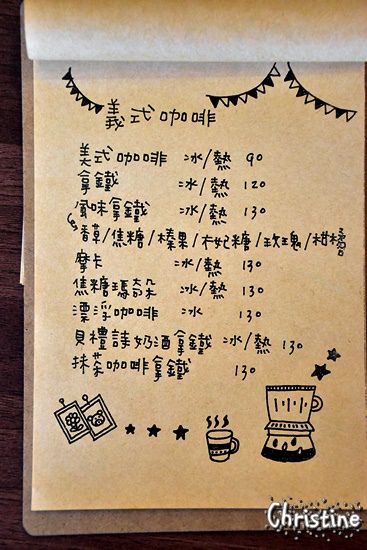 義式咖啡
美式咖啡 冰/熱 90
拿鐵 冰/熱 120
風味拿鐵 冰/熱 130
香草/焦糖/榛果/太妃糖/玫瑰/柑橘
摩卡 冰/熱 130
焦糖瑪奇朵 冰/熱 130
漂浮咖啡 冰 130
貝禮詩奶酒拿鐵 冰/熱 130
抹茶咖啡拿鐵 130
Christine